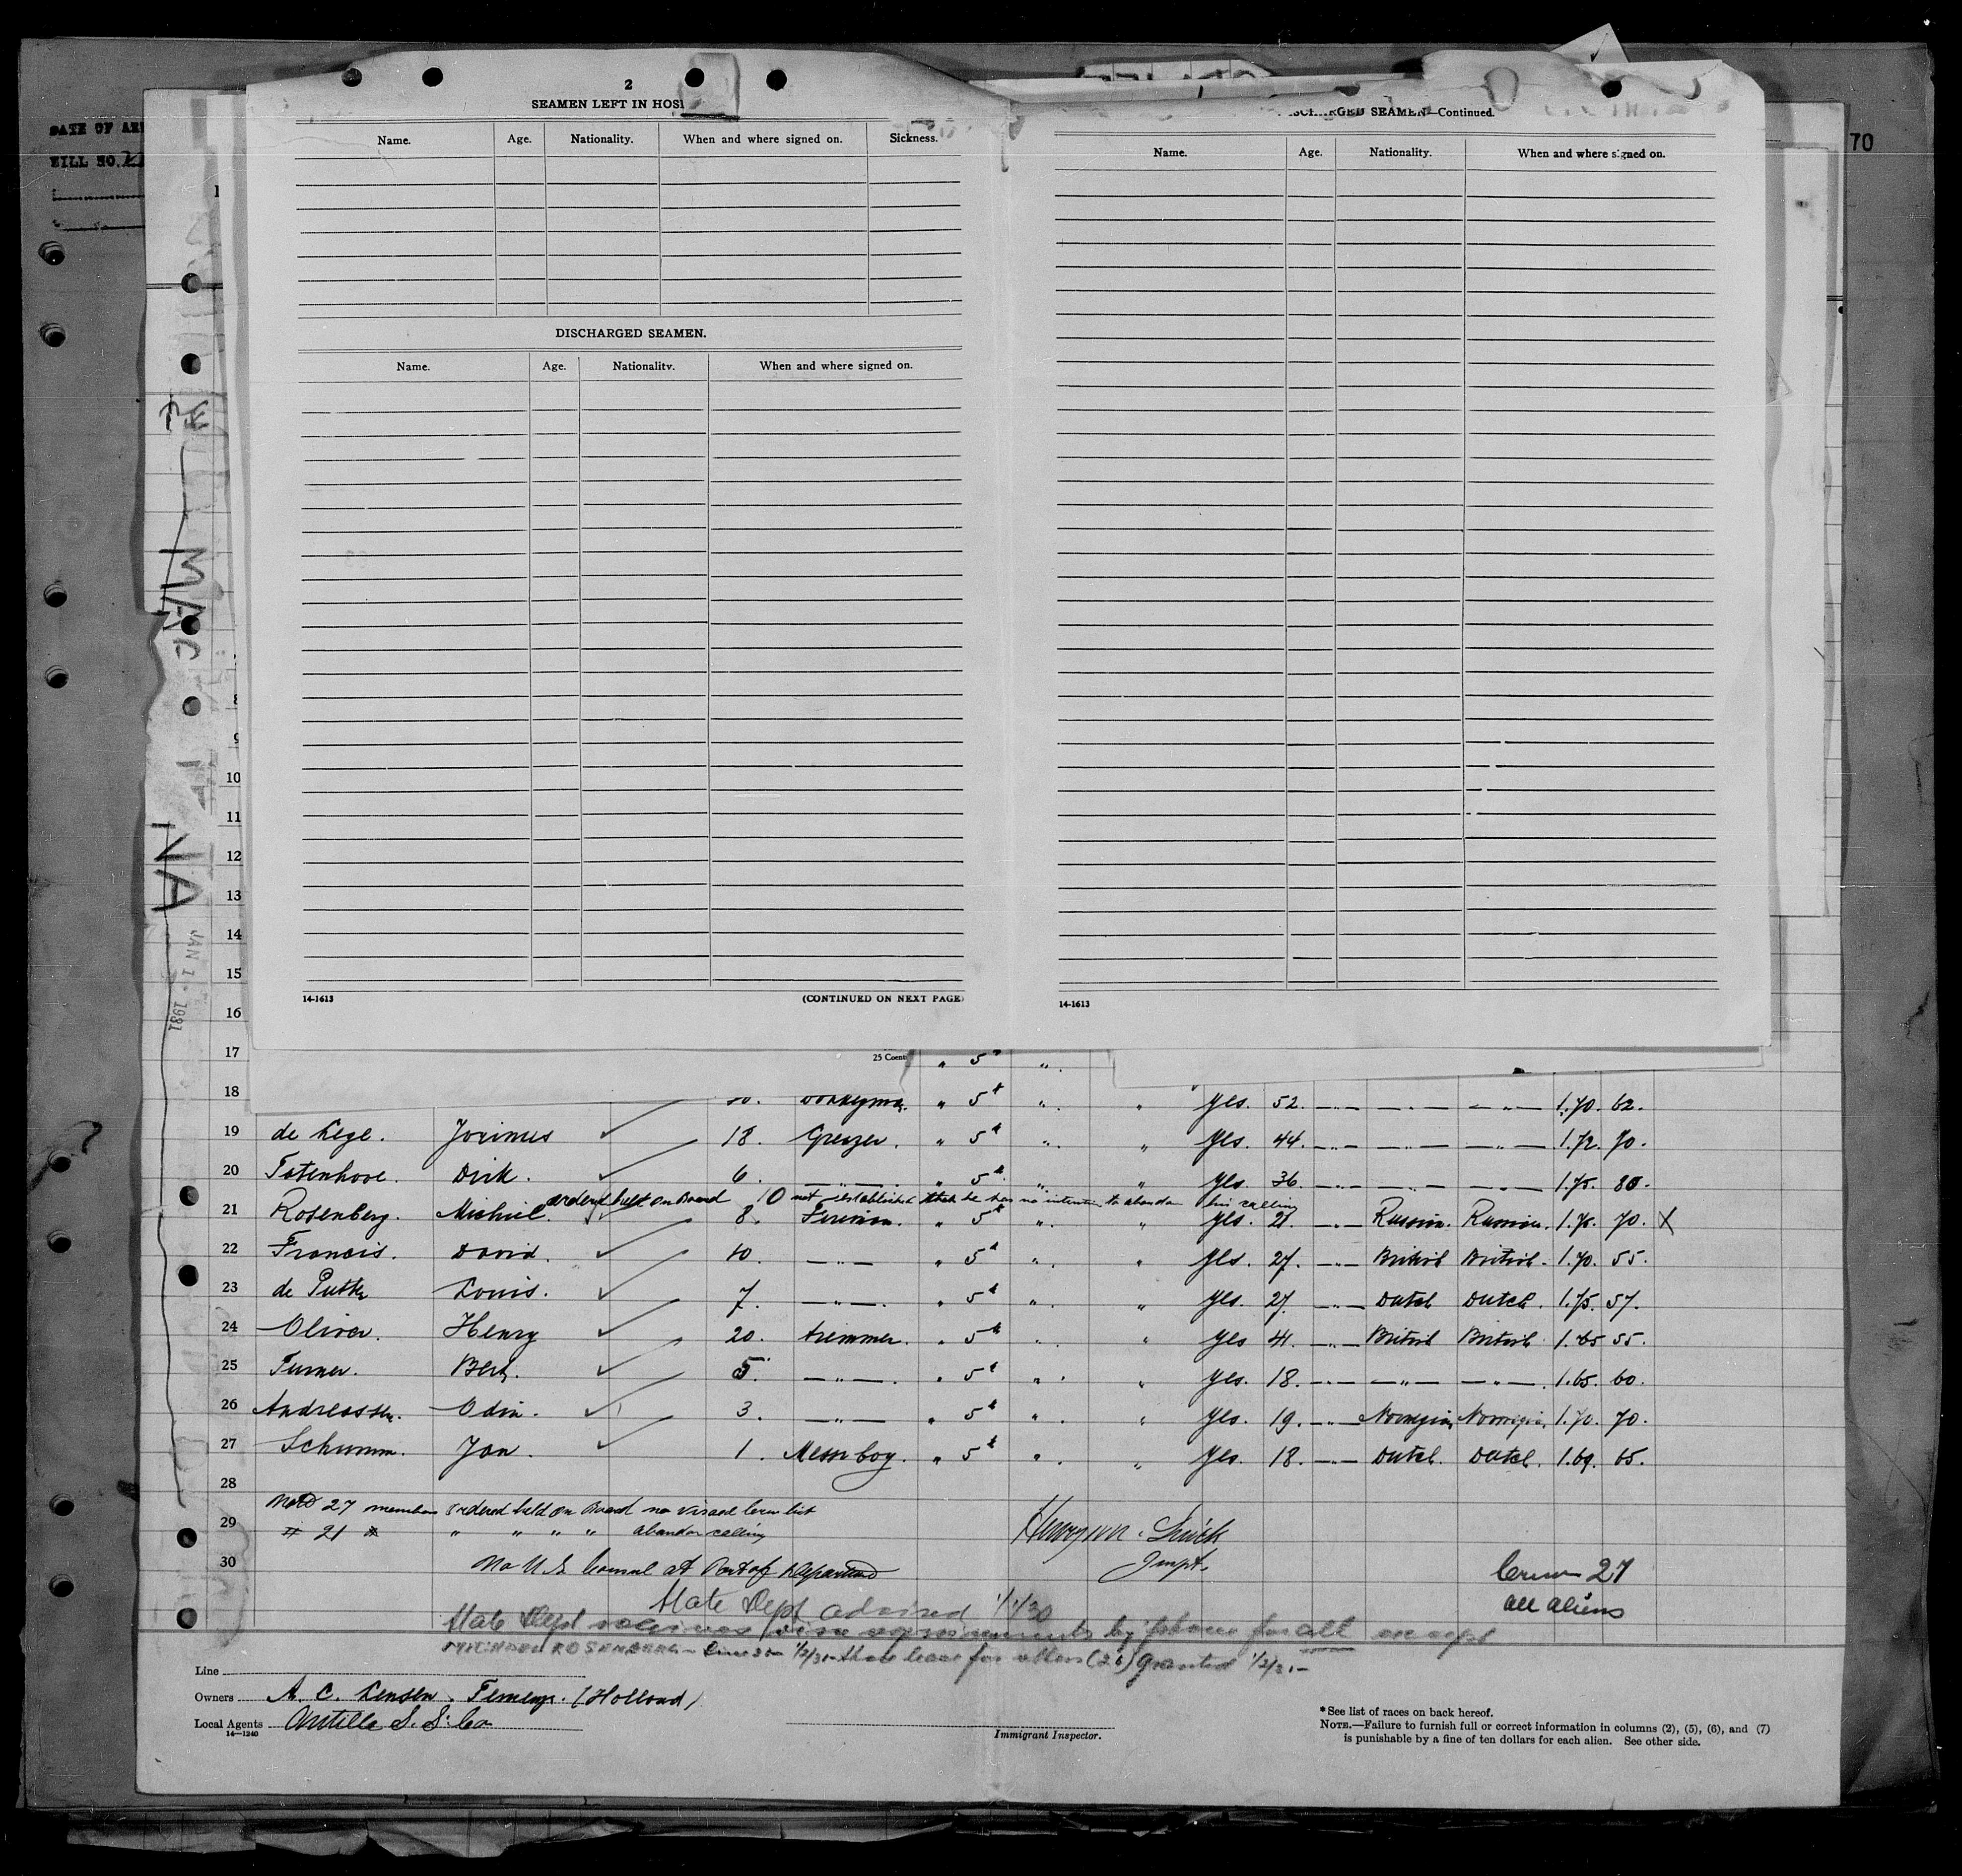 DATE OF
BILL NO.
70
2
SEAMEN LEFT IN HOS
Name. Age. Nationality. When and where signed on. Sickness.
DISCHARGED SEAMEN.
Name. Age. Nationality. When and where signed on.
14-1613 (CONTINUED ON NEXT PAGE)
DISCHARGED SEAMEN—Continued.
Name. Age. Nationality. When and where signed on.
14-1613
JAN 1 - 1931
10
11
12
13
14
15
16
17 25 " 5 "
18 Donkeyman. " 5 " " Yes. 52. 1.70. 62.
19 de Lege. Jorinus 18. Greazer. " 5 " " Yes. 44. 1.72. 70.
20 Totenhove. Dirk. 6. —"— " 5 " " Yes. 36. 1.75. 80.
ordered held on Board not established that he has no intention to abandon his calling
21 Rosenberg. Michiel. 8. Fireman. " 5 " " Yes. 21. Russian. Russian. 1.75. 70. X
22 Francis. David. 10. —"— " 5 " " Yes. 27. British British. 1.70. 55.
23 de Putter Louis. 7. —"— " 5 " " Yes. 27. Dutch Dutch. 1.75. 57.
24 Oliver. Henry 20. trimmer. " 5 " " Yes 41. British British 1.65 55.
25 Turner. Bert. 5. —"— " 5 " " Yes. 18. —"— —"— 1.65. 60.
26 Andreassen. Odin. 3. —"— " 5 " " Yes. 19. Norwegian Norwegian. 1.70. 70.
27 Schumm. Jan. 1. Messboy. " 5 " " Yes. 18. Dutch. Dutch. 1.69. 65.
28
27 members ordered held on Board no visaed Crew list
29 # 21 " " " " abandon calling
30 No U.S. Consul at Port of Departure
Inspt.
Crew 27
all aliens
State Dept advised 1/1/30
State Dept waives visa requirements by phone for all except
MICHAEL ROSENBERG – 1/2/31 – shore leave for others (26) granted 1/2/31 –
Line
Owners A. C. Lensen. Terneuzen. (Holland)
Local Agents Antilla S. S. Co
14—1240
Immigrant Inspector.
*See list of races on back hereof.
NOTE.—Failure to furnish full or correct information in columns (2), (5), (6), and (7)
is punishable by a fine of ten dollars for each alien. See other side.